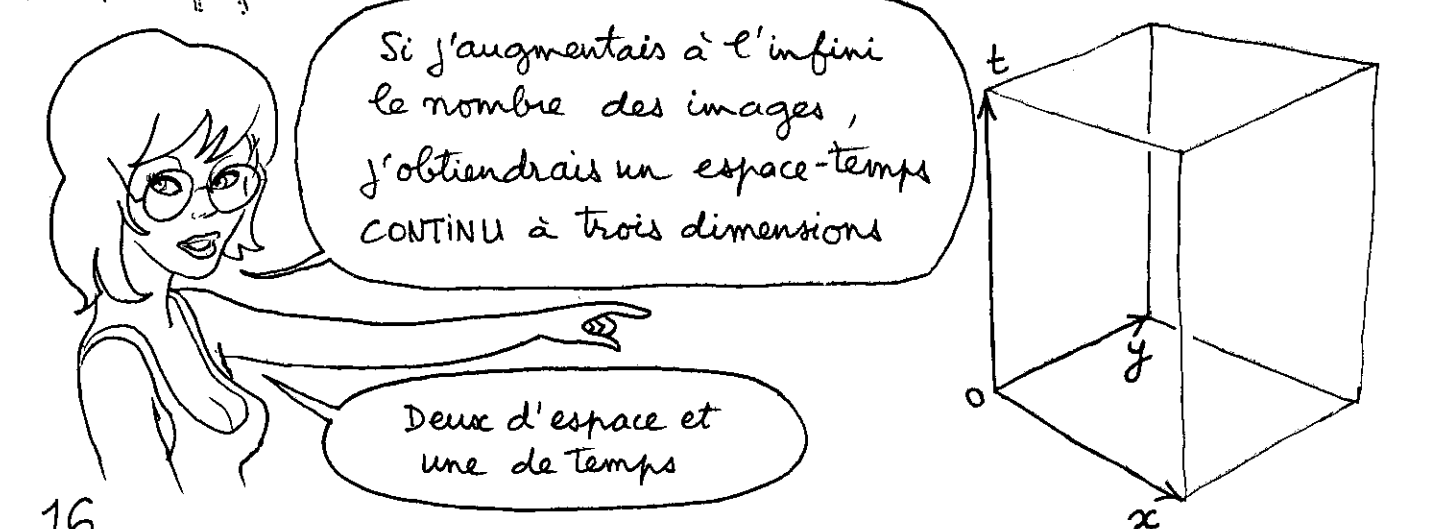 Si j'augmentais à l'infini
le nombre des images,
j'obtiendrais un espace-temps
CONTINU à trois dimensions
Deux d'espace et
une de temps
t
o
y
x
16